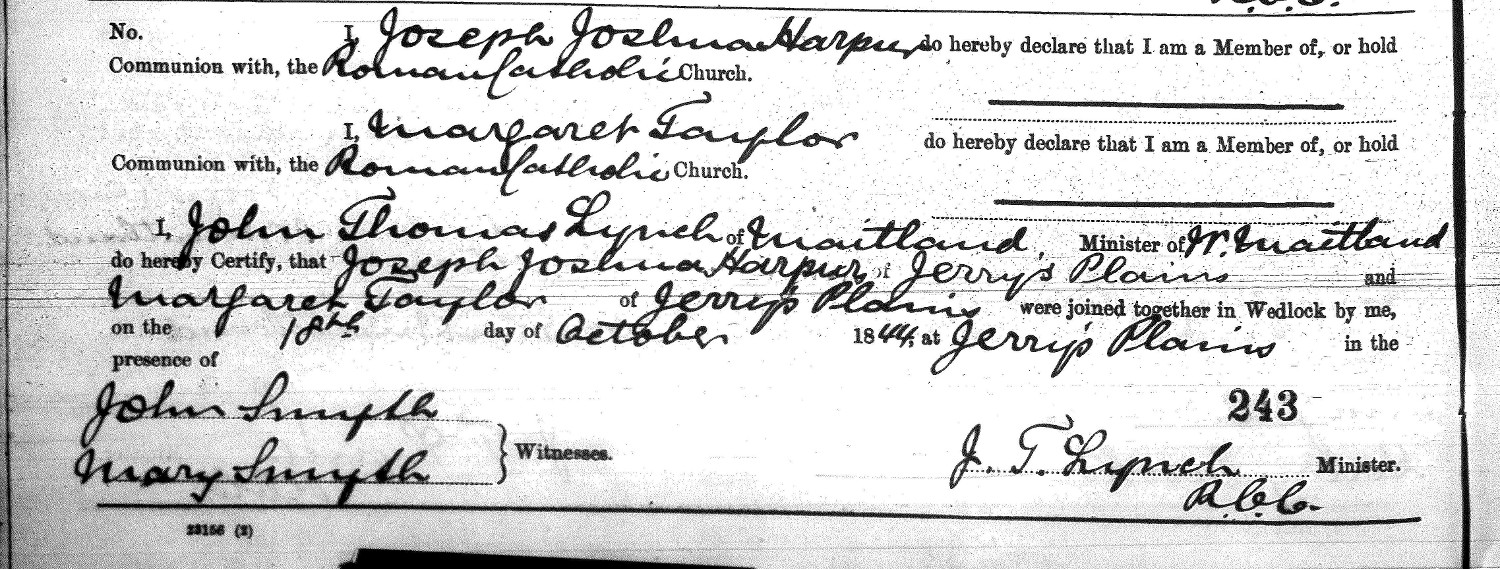 No. I, Joseph Joshua Harpur do hereby declare that I am a Member of, or hold
Communion with, the Roman Catholic Church.
I, Margaret Taylor do hereby declare that I am a Member of, or hold
Communion with, the Roman Catholic Church.
I, John Thomas Lynch of Maitland, Minister of W. Maitland
do hereby Certify, that Joseph Joshua Harpur, of Jerry's Plains and
Margaret Taylor of Jerry's Plains were joined together in Wedlock by me,
on the 18th day of October 1844, at Jerry's Plains in the
presence of
John Smyth
Mary Smyth
Witnesses.
243
J. T. Lynch Minister.
R.C.C.
23156 (2)